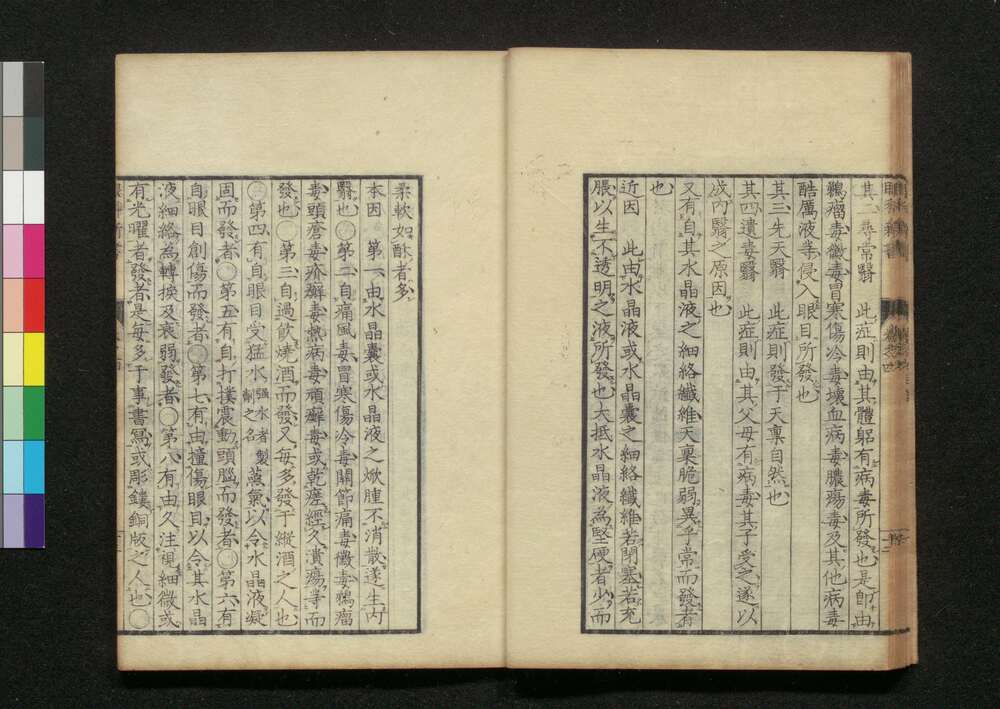 其二尋常翳　此症則由其體軀有病毒所發也是卽由
鵝瘤毒黴毒冒寒傷冷毒壞血病毒膿瘍毒及其他病毒
酷厲液等侵入眼目所發也
其三先天翳　此症則發于天稟自然也
其四遺毒翳　此症則由其父母有病毒其子受之遂以
成內翳之原因也
又有自其水晶液之細絡纖維天稟脆弱異乎常而發者
也
近因　此由水晶液或水晶囊之細絡纖維若閉塞若充
脹以生不透明之液所發也大抵水晶液為堅硬者少而
柔軟如酥者多
本因　第一由水晶囊或水晶液之焮腫不消散遂生內
翳也○第二自痛風毒冒寒傷冷毒關節痛毒黴毒鵝瘤
毒頭瘡毒疥癬毒熱病毒頑癬毒或乾瘥經久潰瘍等而
發也○第三自過飮燒酒而發又每多發于縱酒之人也
○第四有自眼目受猛水強水者製劑之名蒸氣以令水晶液凝
固而發者○第五有自打撲震動頭腦而發者○第六有
自眼目創傷而發者○第七有由撞傷眼目以令其水晶
液細絡為轉捩及衰弱發者○第八有由久注視細微或
有光曜者發者是每多于事書寫或彫鏤銅版之人也○